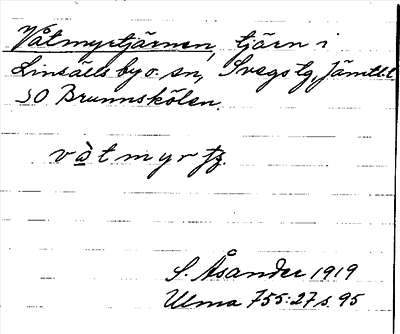 Våtmyrtjärnen, tjärn i
Linsälls by o. sn, Svegs tg, Jämtl. l
SO Brunnskölen.
våtmyrtj.
S. Åsander 1919
Ulma 755:27 s. 95